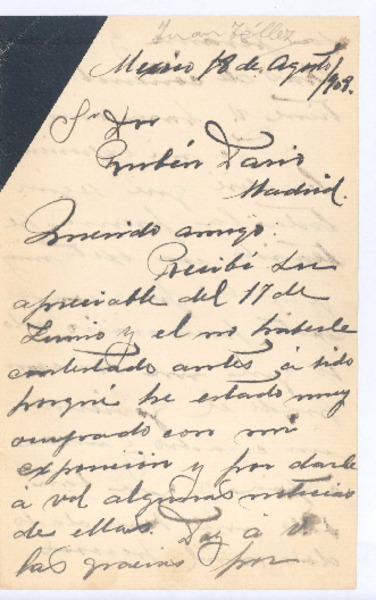 Juan Téllez
Mexico 18 de Agosto/908.
Sr Dn
Rubén Dario
Madrid.
Querido amigo:
Recibí su
apreciable del 17 de
Junio y el no haberle
contestado antes á sido
porqué he estado muy
ocupado con mi
exposición y por darle
á vd algunas noticias
de ellas. Doy á V.
las gracias por